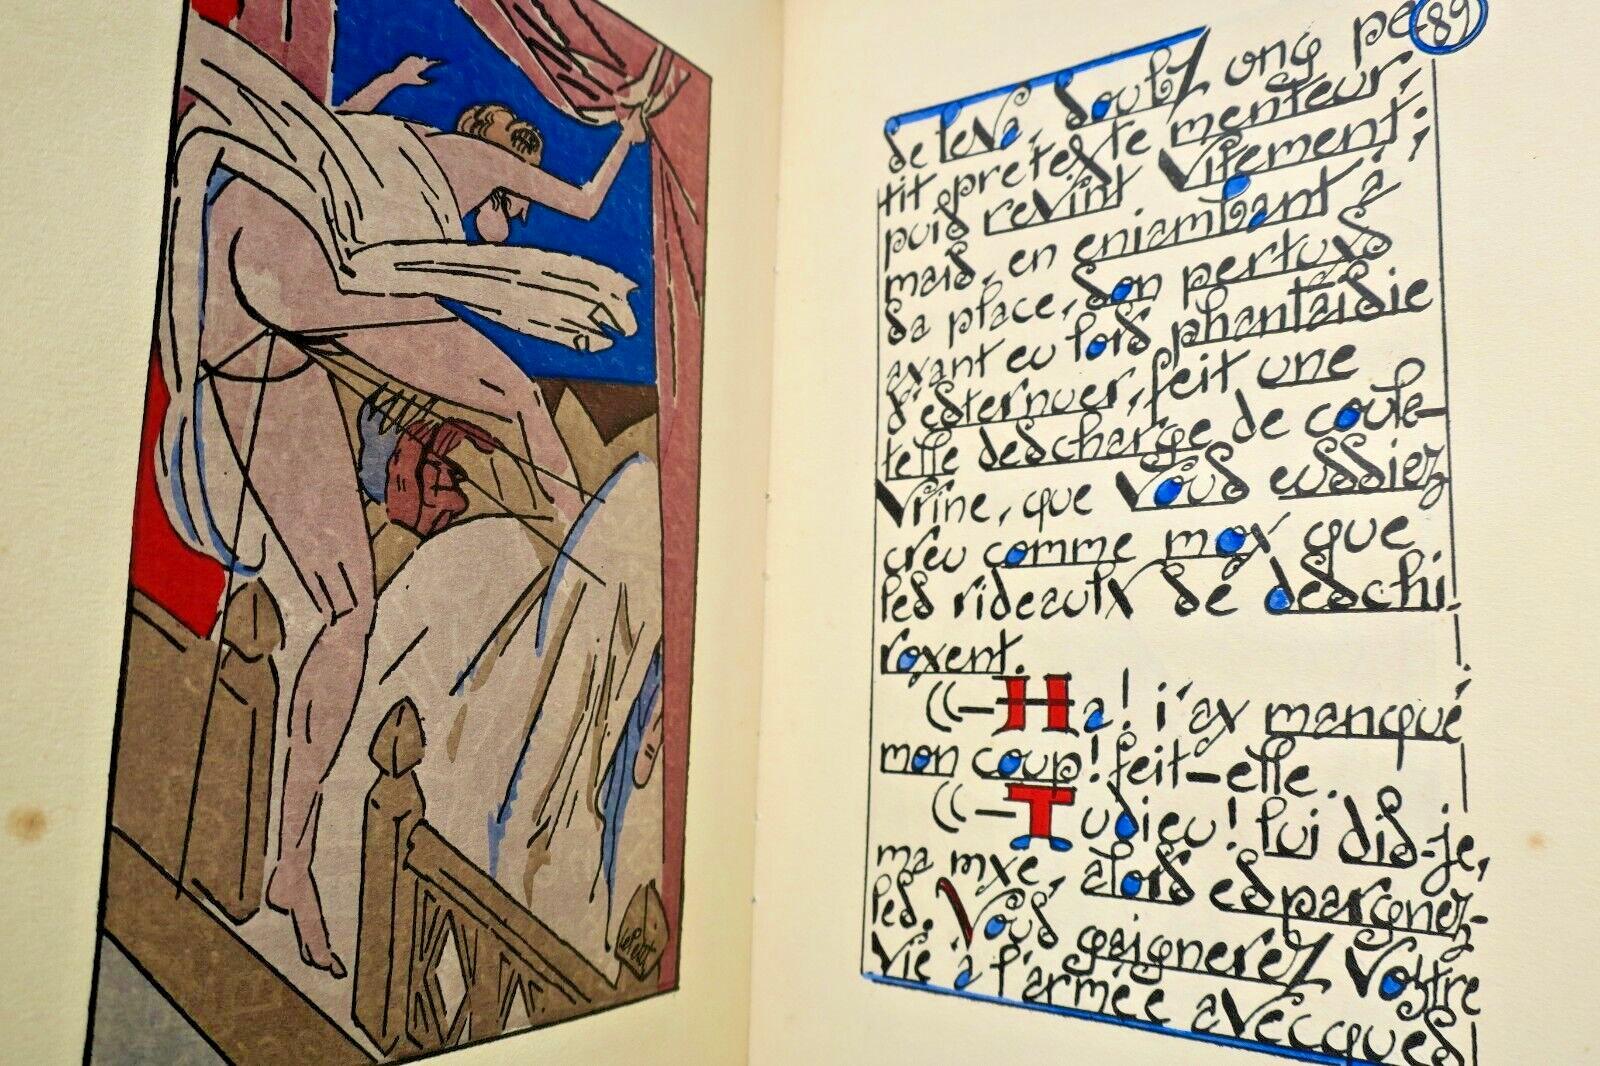 Le Petit
89
se leva, soubz ung pe
tit pretexte menteur,
puis revint vitement;
mais, en eniambant à
sa place, son pertuys
ayant eu lors phantaisie
d'esternuer, feit une
telle descharge de coule-
vrine, que vous eussiez
creu comme moy que
les rideaulx se deschi
royent.
((—Ha! i'ay manqué
mon coup! feit-elle.
((—Tudieu! lui dis-je,
ma mye, alors espargnez-
les. Vous gaignerez vostre
vie à l'armée avecques